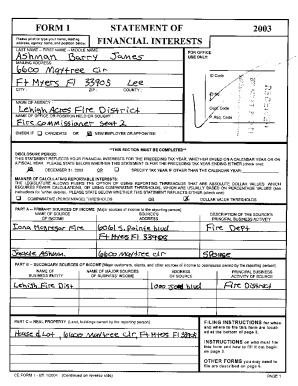 FORM 1 STATEMENT OF 2003
Please print or type your name, mailing address, agency name, and position below:
FINANCIAL INTERESTS
LAST NAME -- FIRST NAME -- MIDDLE NAME:
FOR OFFICE USE ONLY:
Ashman Barry James
MAILING ADDRESS:
6600 Maytree Cir
Ft Myers Fl 33905 Lee
CITY: ZIP: COUNTY:
ID Code
ID No.
NAME OF AGENCY:
Lehigh Acres Fire District
Conf. Code
NAME OF OFFICE OR POSITION HELD OR SOUGHT:
Fire Commissioner Seat 2
P. Req. Code
CHECK IF CANDIDATE OR NEW EMPLOYEE OR APPOINTEE
**THIS SECTION MUST BE COMPLETED**
DISCLOSURE PERIOD:
THIS STATEMENT REFLECTS YOUR FINANCIAL INTERESTS FOR THE PRECEDING TAX YEAR, WHETHER BASED ON A CALENDAR YEAR OR ON A FISCAL YEAR. PLEASE STATE BELOW WHETHER THIS STATEMENT IS FOR THE PRECEDING TAX YEAR ENDING EITHER (check one):
DECEMBER 31, 2003 OR SPECIFY TAX YEAR IF OTHER THAN THE CALENDAR YEAR:
MANNER OF CALCULATING REPORTABLE INTERESTS:
THE LEGISLATURE ALLOWS FILERS THE OPTION OF USING REPORTING THRESHOLDS THAT ARE ABSOLUTE DOLLAR VALUES, WHICH REQUIRES FEWER CALCULATIONS, OR USING COMPARATIVE THRESHOLDS, WHICH ARE USUALLY BASED ON PERCENTAGE VALUES (see instructions for further details). PLEASE STATE BELOW WHETHER THIS STATEMENT REFLECTS EITHER (check one):
COMPARATIVE (PERCENTAGE) THRESHOLDS OR DOLLAR VALUE THRESHOLDS
PART A -- PRIMARY SOURCES OF INCOME [Major sources of income to the reporting person]
NAME OF SOURCE OF INCOME
SOURCE'S ADDRESS
DESCRIPTION OF THE SOURCE'S PRINCIPAL BUSINESS ACTIVITY
Iona Mcgregor Fire 6061 S. Pointe blvd Fire Dept
Ft Myers Fl 33905
Jackie Ashman 6600 Maytree cir Spouse
PART B -- SECONDARY SOURCES OF INCOME [Major customers, clients, and other sources of income to businesses owned by the reporting person]
NAME OF BUSINESS ENTITY
NAME OF MAJOR SOURCES OF BUSINESS' INCOME
ADDRESS OF SOURCE
PRINCIPAL BUSINESS ACTIVITY OF SOURCE
Lehigh Fire Dist 1000 Joel blvd Fire District
PART C -- REAL PROPERTY [Land, buildings owned by the reporting person]
House & Lot, 6600 Maytree Cir, Ft Myers Fl 33905
FILING INSTRUCTIONS for when and where to file this form are located at the bottom of page 2.
INSTRUCTIONS on who must file this form and how to fill it out begin on page 3.
OTHER FORMS you may need to file are described on page 6.
CE FORM 1 - Eff. 1/2004 (Continued on reverse side) PAGE 1